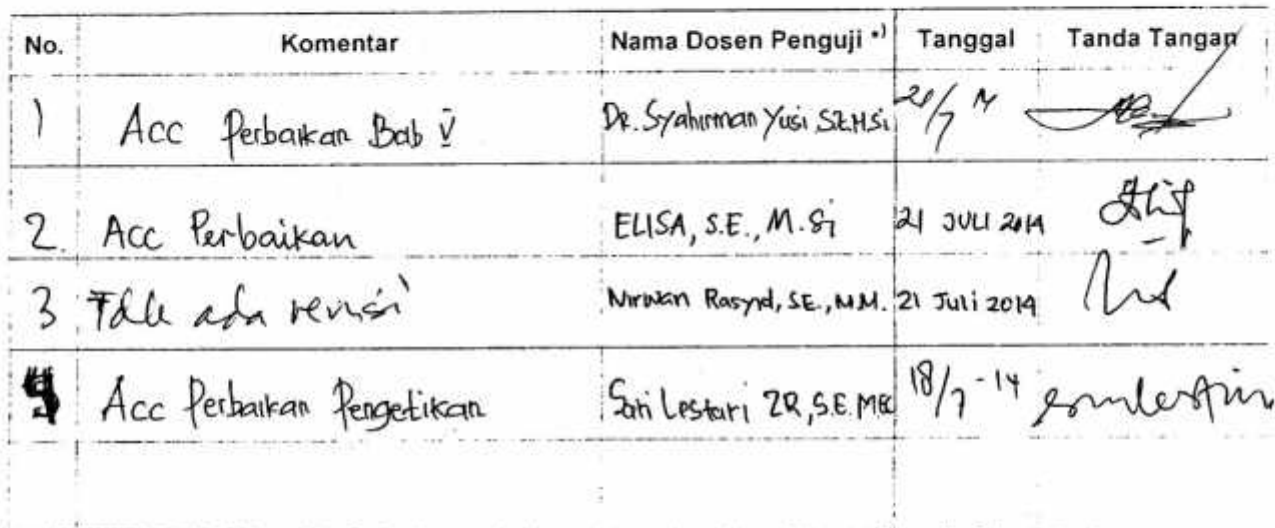 No. Komentar Nama Dosen Penguji *) Tanggal Tanda Tangan
1 Acc Perbaikan Bab V Dr. Syahirman Yusi, SE.MSi
2. Acc Perbaikan ELISA, S.E., M.Si 21 JULI 2014
3 Tdk ada revisi Nirwan Rasyid, SE., M.M. 21 Juli 2014
4 Acc Perbaikan Pengetikan Sari Lestari ZR, S.E. MEC 18/7-14